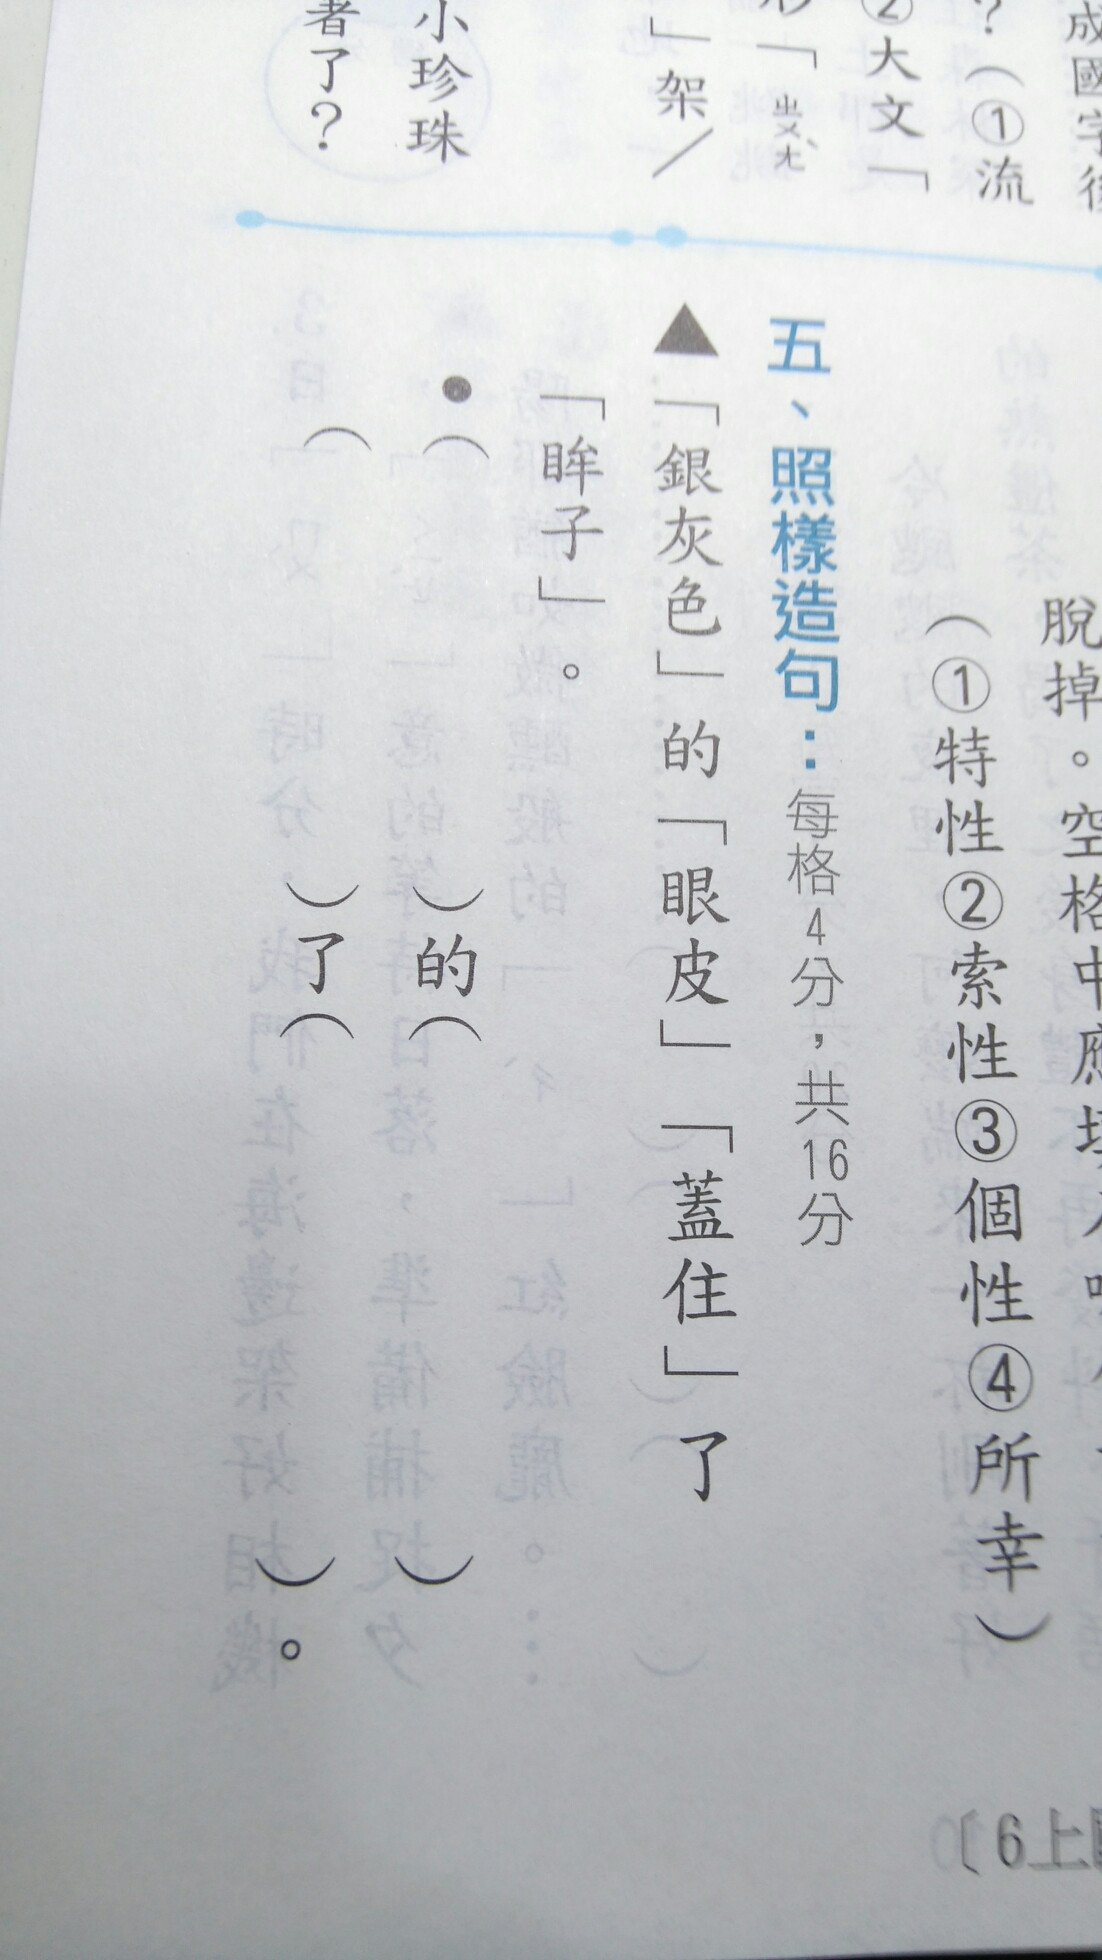 成國字後
？（①流
②大文「
「ㄓㄨㄤˋ
」架／
小珍珠
者了？
脫掉。空格中應填入
（①特性②索性③個性④所幸）
五、照樣造句：每格4分，共16分
▲「銀灰色」的「眼皮」「蓋住」了
「眸子」。
●（　　　）的（　　　）
（　　　）了（　　　）。
〔6上